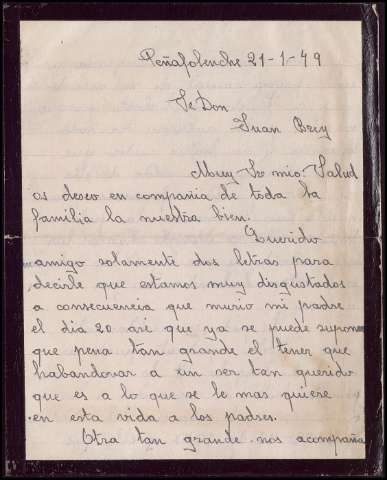 Peñafolenche 21-1-49
Se Don
Juan Bery
Muy Sr mio. Salud
os deseo en compañia de toda la
familia la nuestra bien.
Querido
amigo solamente dos letras para
decirte que estamos muy disgustados
a consecuencia que murio mi padre
el dia 20 asi que ya se puede supone
que pena tan grande el tener que
habandonar a un ser tan querido
que es a lo que se le mas quiere
en esta vida a los padres.
Otra tan grande nos acompaña